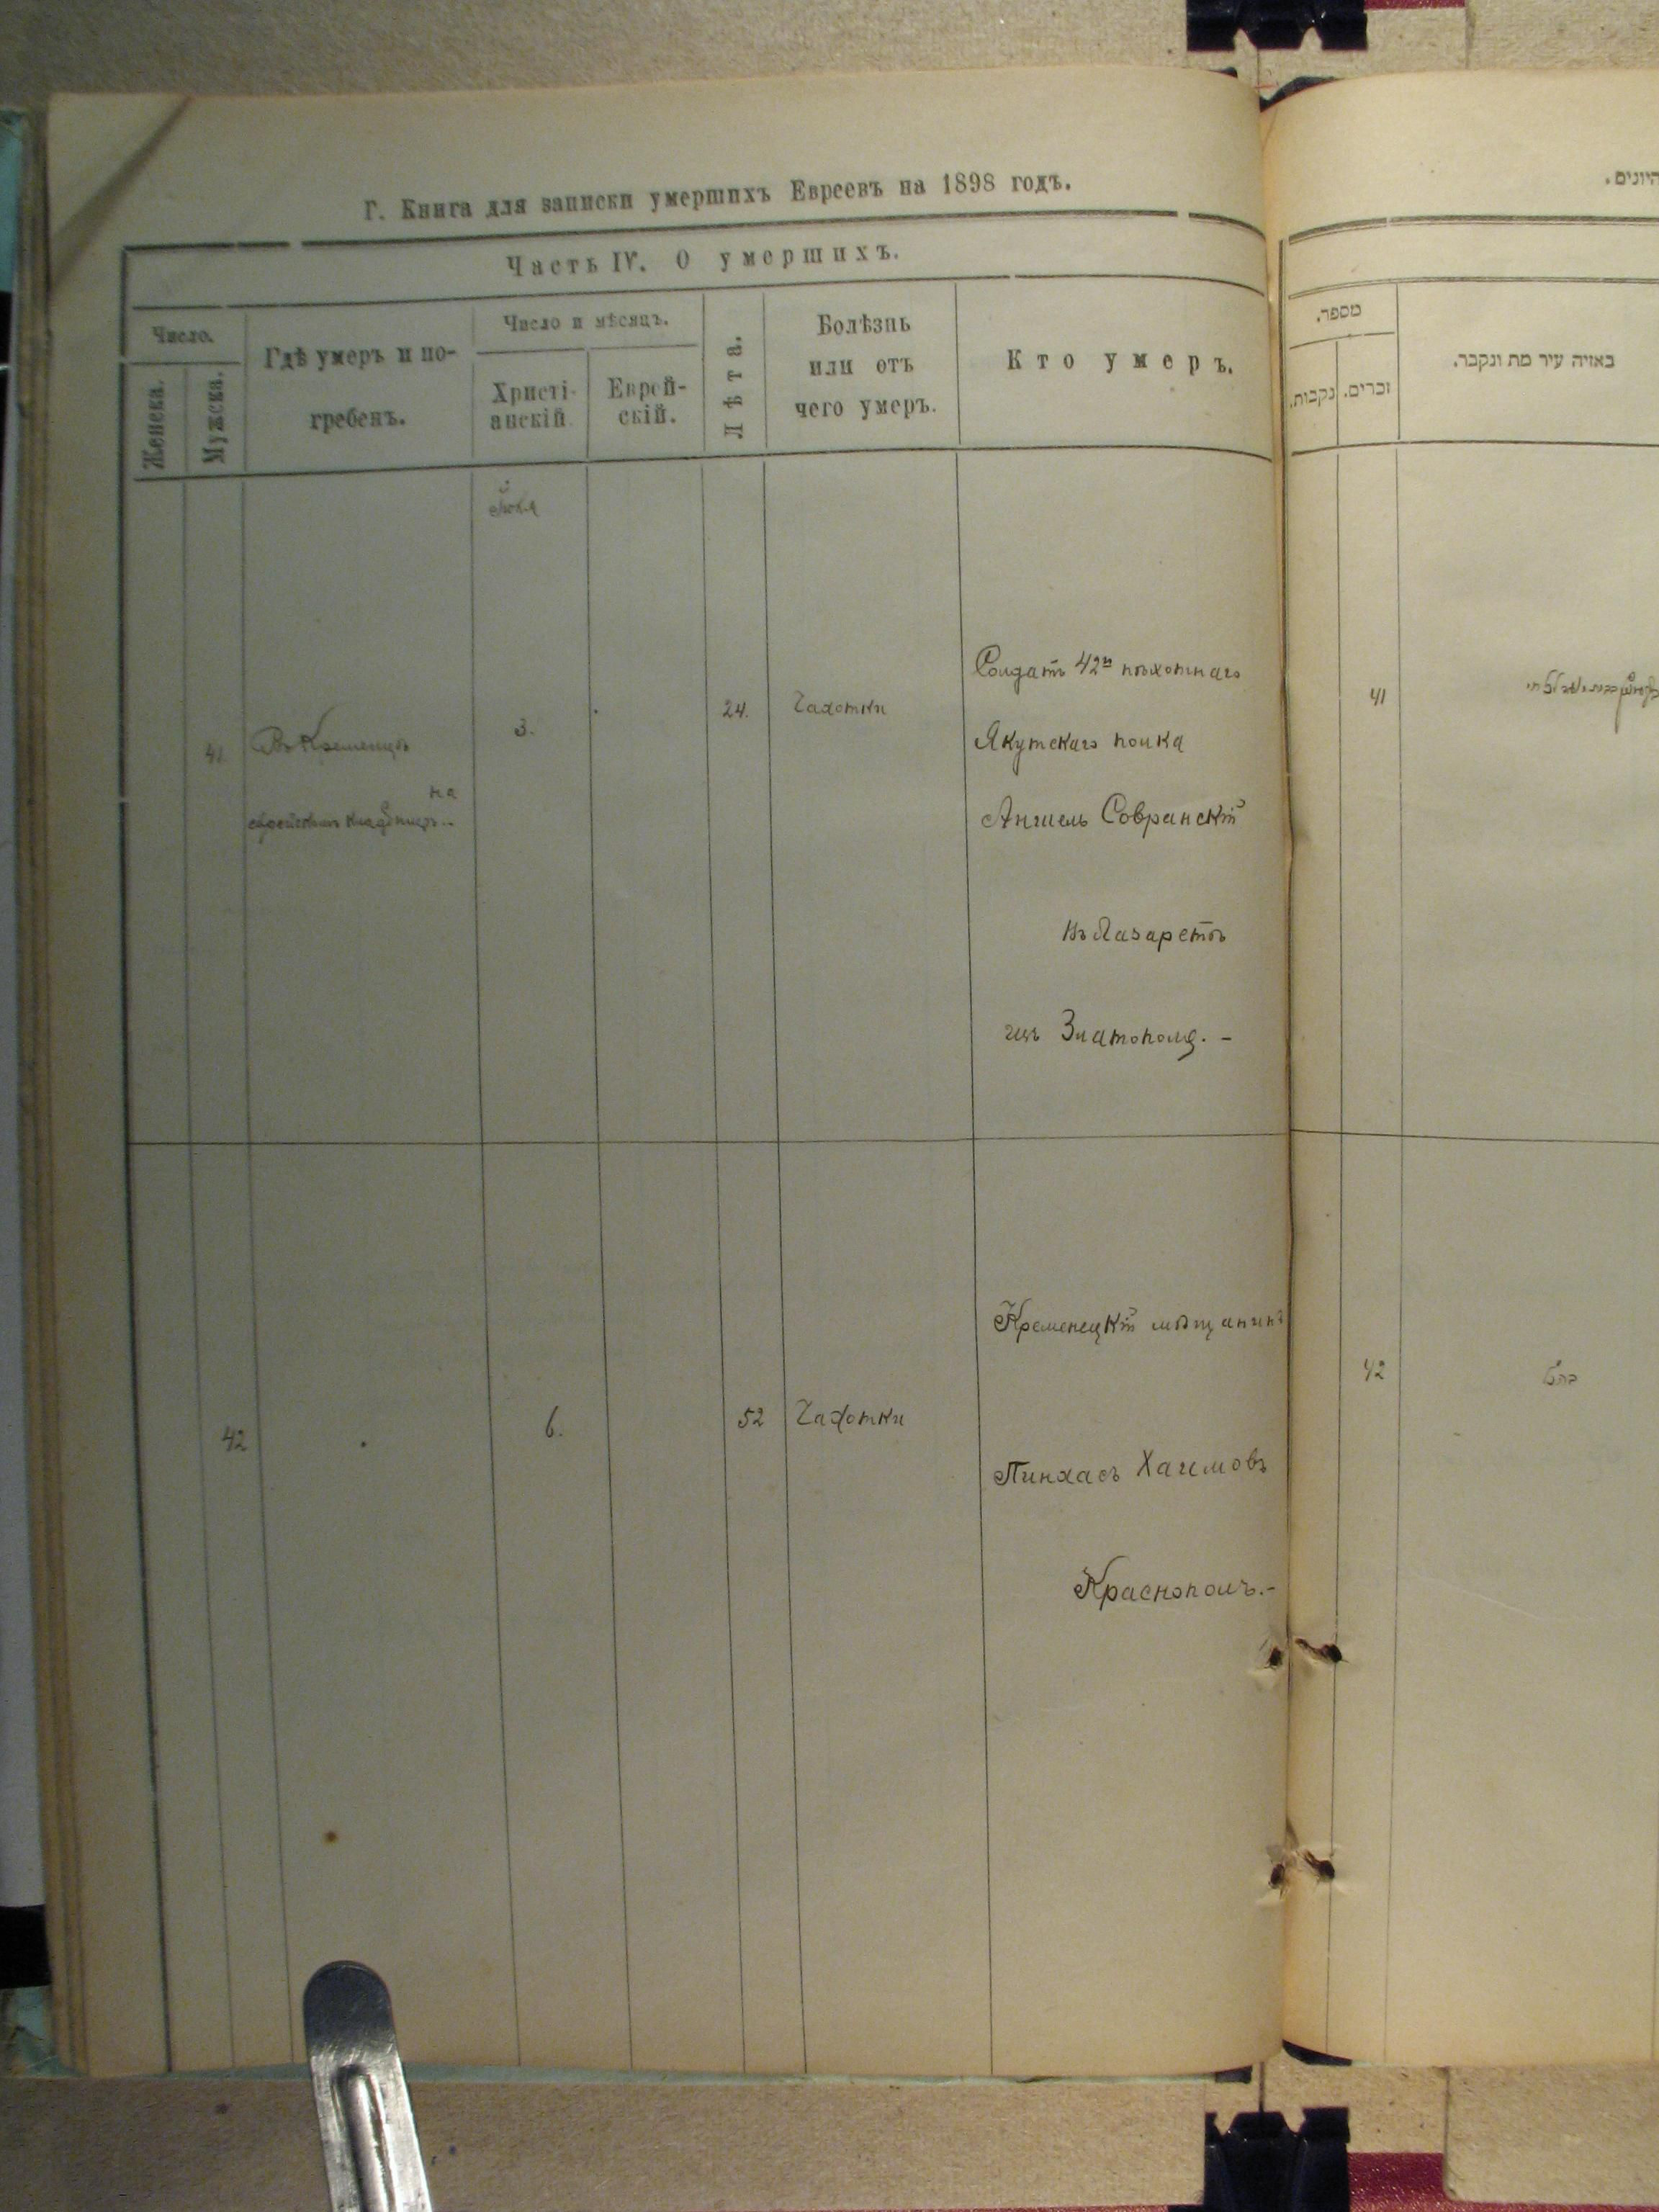 Г. Книга для записки умершихъ Евреевъ на 1898 годъ.
Часть IV. О умершихъ.
Число.
Женска.
Мужска.
Гдѣ умеръ и по-
гребенъ.
Число и мѣсяцъ.
Христі-
анскій.
Еврей-
скій.
Лѣта.
Болѣзнь
или отъ
чего умеръ.
Кто умеръ.
41
Въ Кременцѣ
на
еврейскомъ кладбищѣ.-
3.
24.
Чахотки
Солдатъ 42го пѣхотнаго
Якутскаго полка
Аншель Совранскій
въ Лазаретѣ
изъ Златополя.-
42
6.
52
Чахотки
Кременецкій мѣщанинъ
Пинхасъ Хаимовъ
Краснополъ.-
מספר.
נקבות.
זכרים.
באזיה עיר מת ונקבר.
41
42